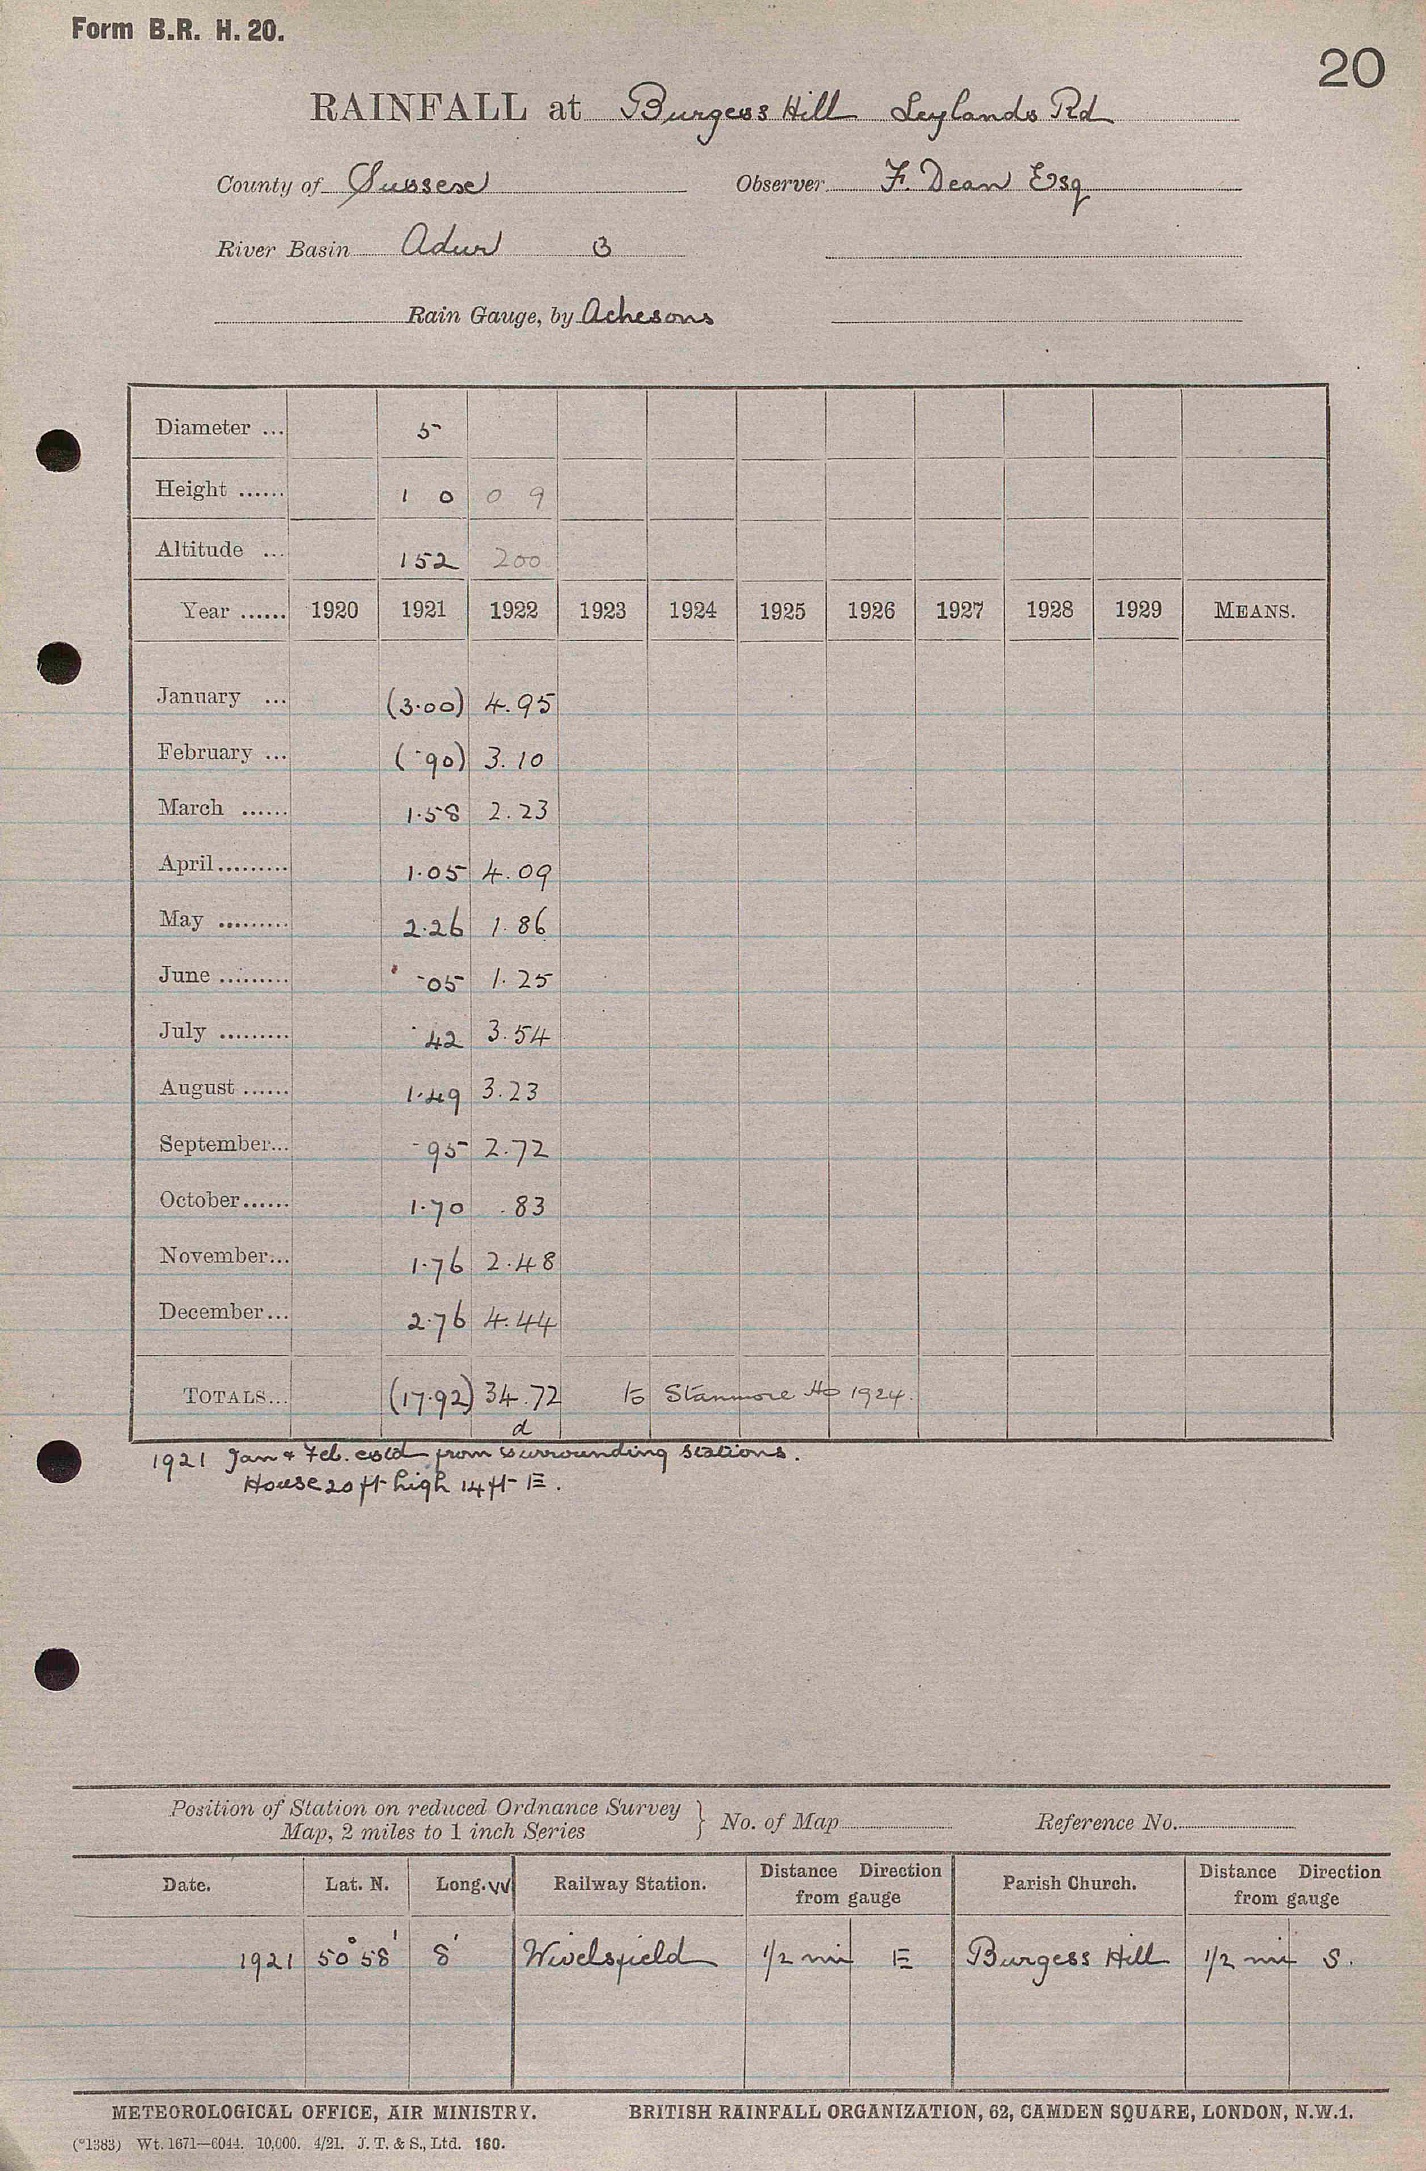 Form B.R. H. 20.
20
RAINFALL at Burgess Hill Leylands Rd
County of Sussex Observer F. Dean Esq
River Basin Adur B
Rain Gauge, by Achesons
Diameter ... 5
Height ...... 1 0 0 9
Altitude ... 152 200
Year ...... 1920 1921 1922 1923 1924 1925 1926 1927 1928 1929 MEANS.
January ... (3.00) 4.95
February ... (.90) 3.10
March ...... 1.58 2.23
April ......... 1.05 4.09
May ......... 2.26 1.86
June ......... .05 1.25
July ......... .42 3.54
August ...... 1.49 3.23
September... .95 2.72
October ...... 1.70 .83
November... 1.76 2.48
December... 2.76 4.44
TOTALS... (17.92) 34.72 to Stanmore Ho 1924.
d
1921 Jan & Feb. estd from surrounding stations.
House 20 ft high 14 ft E.
Position of Station on reduced Ordnance Survey
Map, 2 miles to 1 inch Series } No. of Map Reference No.
Date. Lat. N. Long. W Railway Station. Distance Direction from gauge Parish Church. Distance Direction from gauge
1921 50° 58' 8' Wivelsfield 1/2 mi E Burgess Hill 1/2 mi S.
METEOROLOGICAL OFFICE, AIR MINISTRY. BRITISH RAINFALL ORGANIZATION, 62, CAMDEN SQUARE, LONDON, N.W.1.
(*1383) Wt. 1671—6044. 10,000. 4/21. J. T. & S., Ltd. 160.